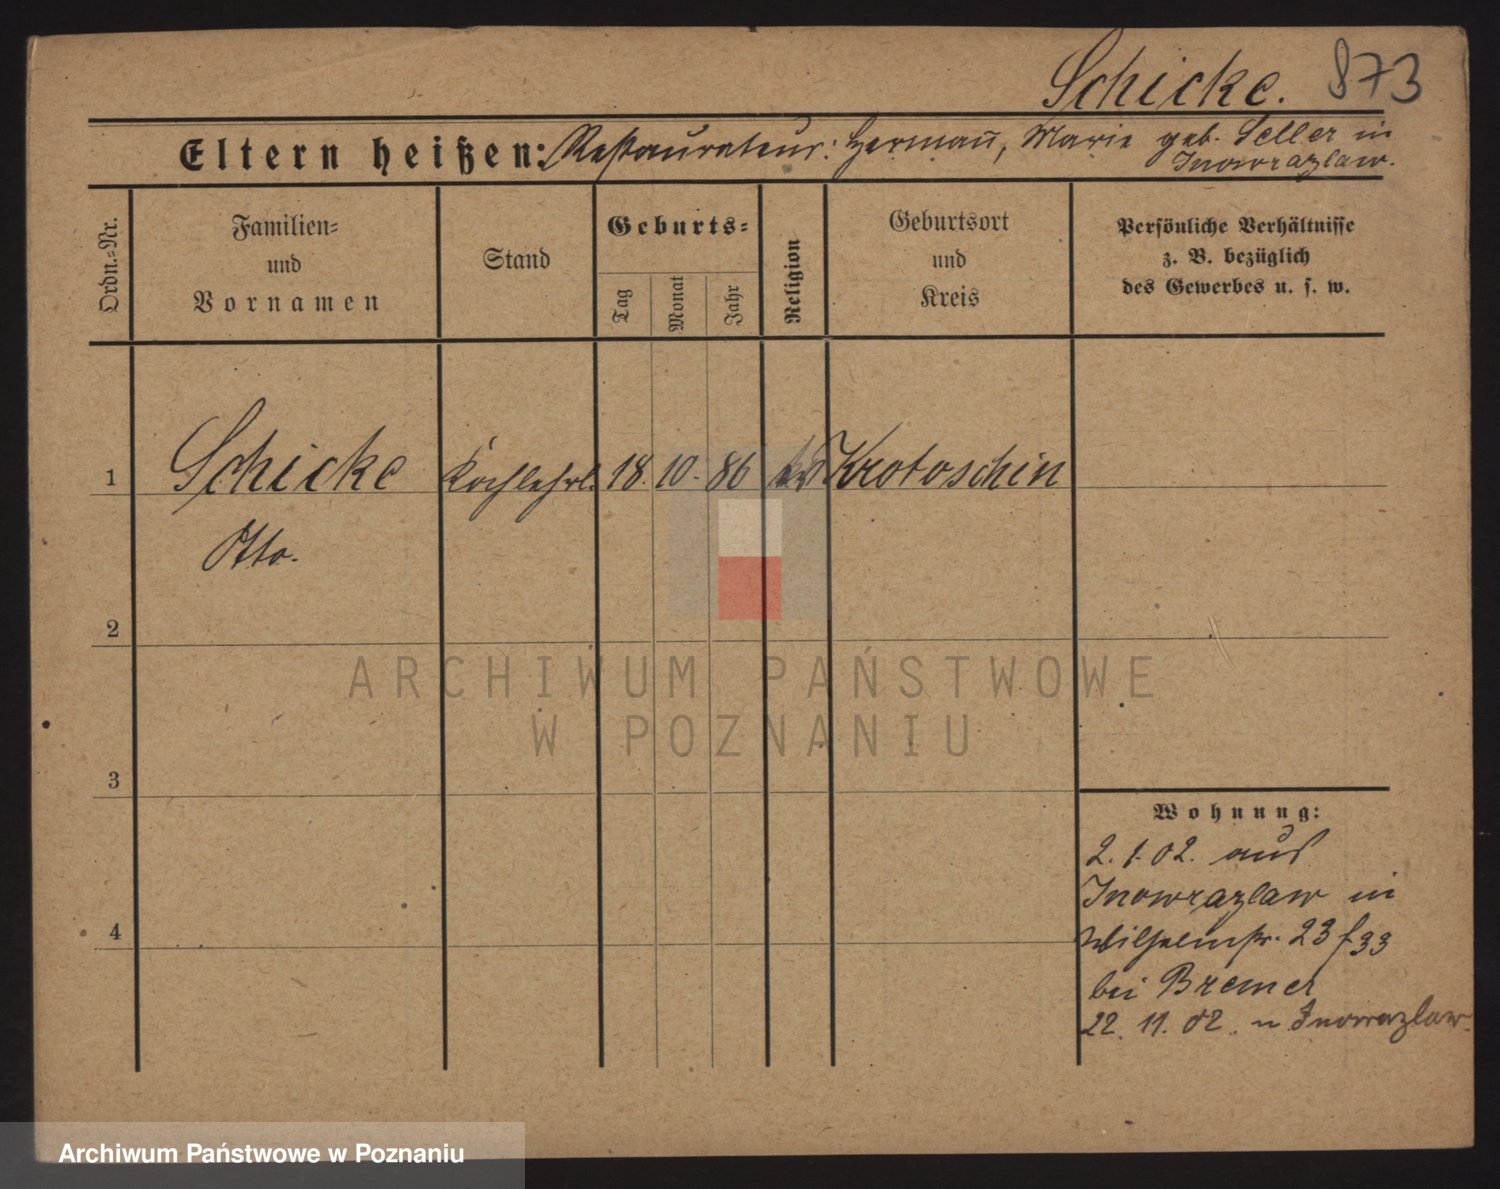 Schicke. 873
Eltern heißen: Restaurateur: Hermañ, Marie geb. Seller in
Inowrazlaw.
Ordn.-Nr.
Familien-
und
Vornamen
Stand
Geburts-
Tag
Monat
Jahr
Religion
Geburtsort
und
Kreis
Persönliche Verhältnisse
z. B. bezüglich
des Gewerbes u. s. w.
1 Schicke Kochlehrl. 18. 10. 86 Krotoschin
Otto.
2
ARCHIWUM PAŃSTWOWE
W POZNANIU
3
Wohnung:
2. 1. 02. aus
Inowrazlaw in
4
Wilhelmstr. 23 f 33
bei Bremer
22. 11. 02. n Inowrazlaw.
Archiwum Państwowe w Poznaniu